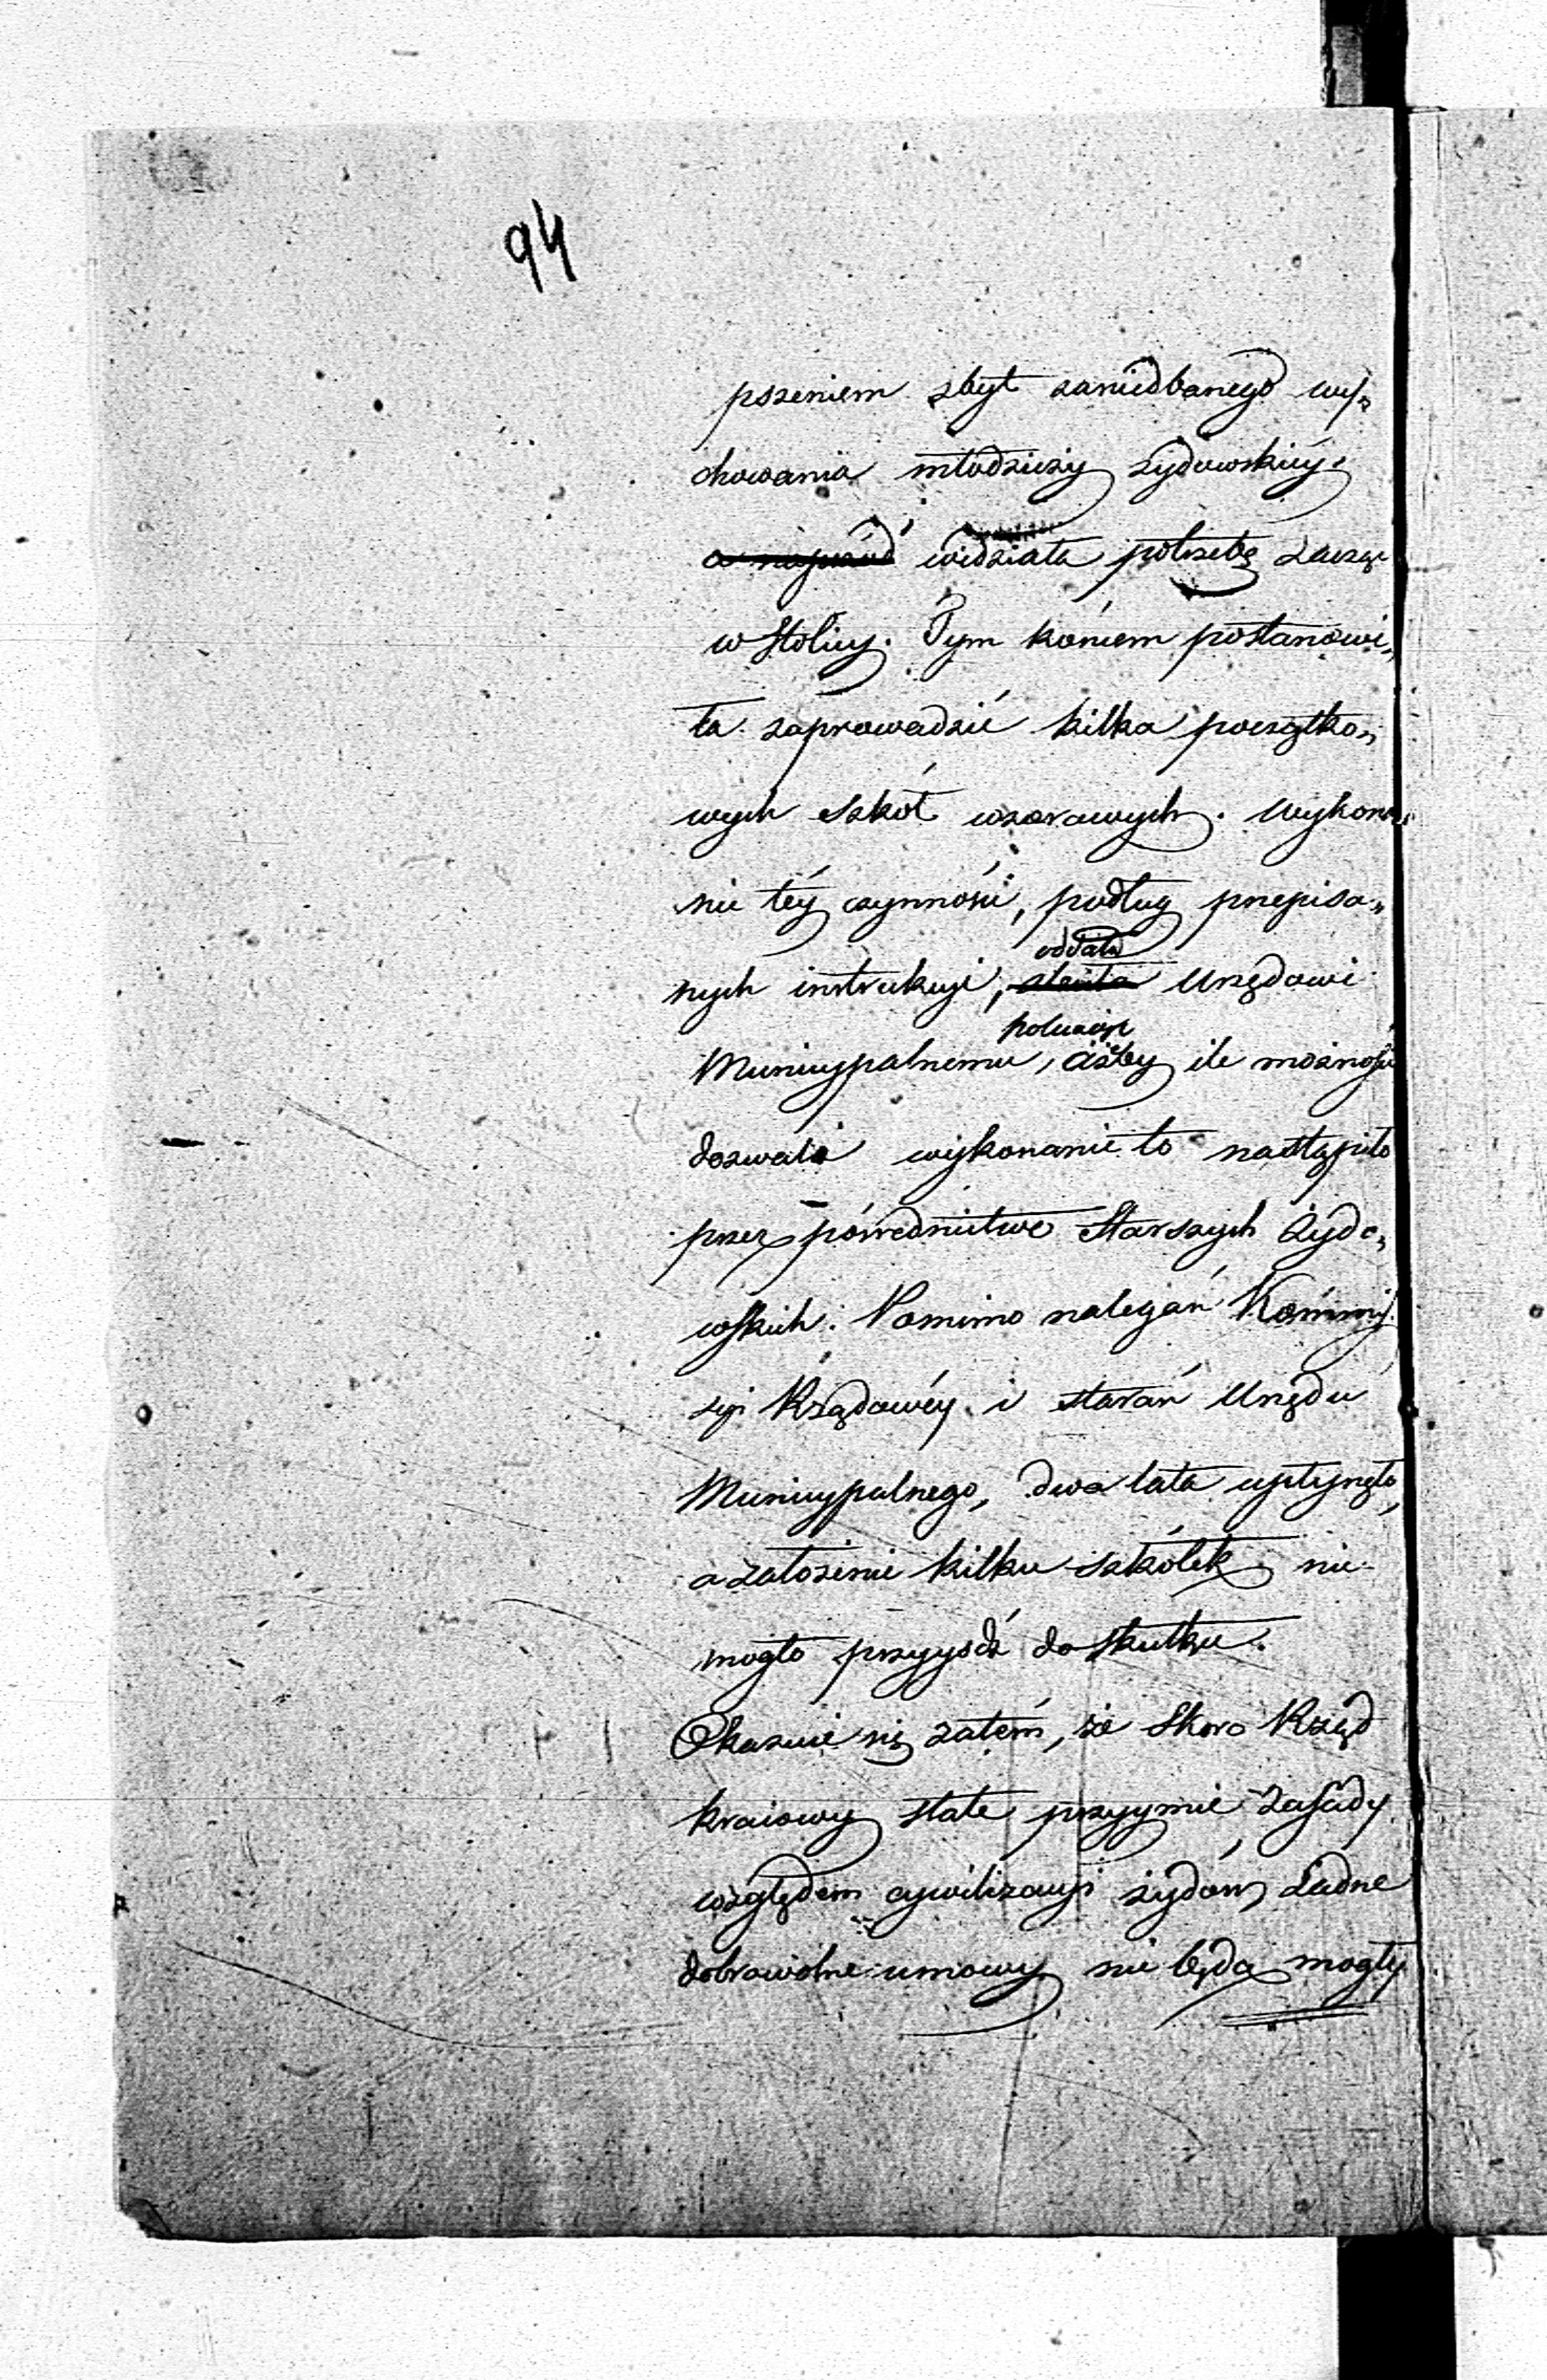 94
pszeniem zbyt zaniedbanego wy„
chowania młodzieży żydowskiéy.
a naprzód widziała potrzebę zacząć
w stolicy. Tym końcem postanowi„
ła zaprowadzić kilka początko„
wych szkół wzorowych. Wykona„
nie téy czynności, podług przepisa„
nych instrukcyi, zleciła oddała Urzędowi
Municypalnemu, polecaiąc ażeby ile możność
dozwala wykonanie to nastąpiło
przez pośrednictwo Starszych Żydo„
wskich. Pomimo nalegań Kommis„
syi Rządowéy i starań Urzędu
Municypalnego, dwa lata upłynęło,
a założenie kilku szkółek nie
mogło przyyśdź do skutku.
Okazuie się zatém, że skoro Rząd
kraiowy stałe przyymie zasady
względem cywilizacyi żydów, żadne
dobrowolne umowy nie będą mogły